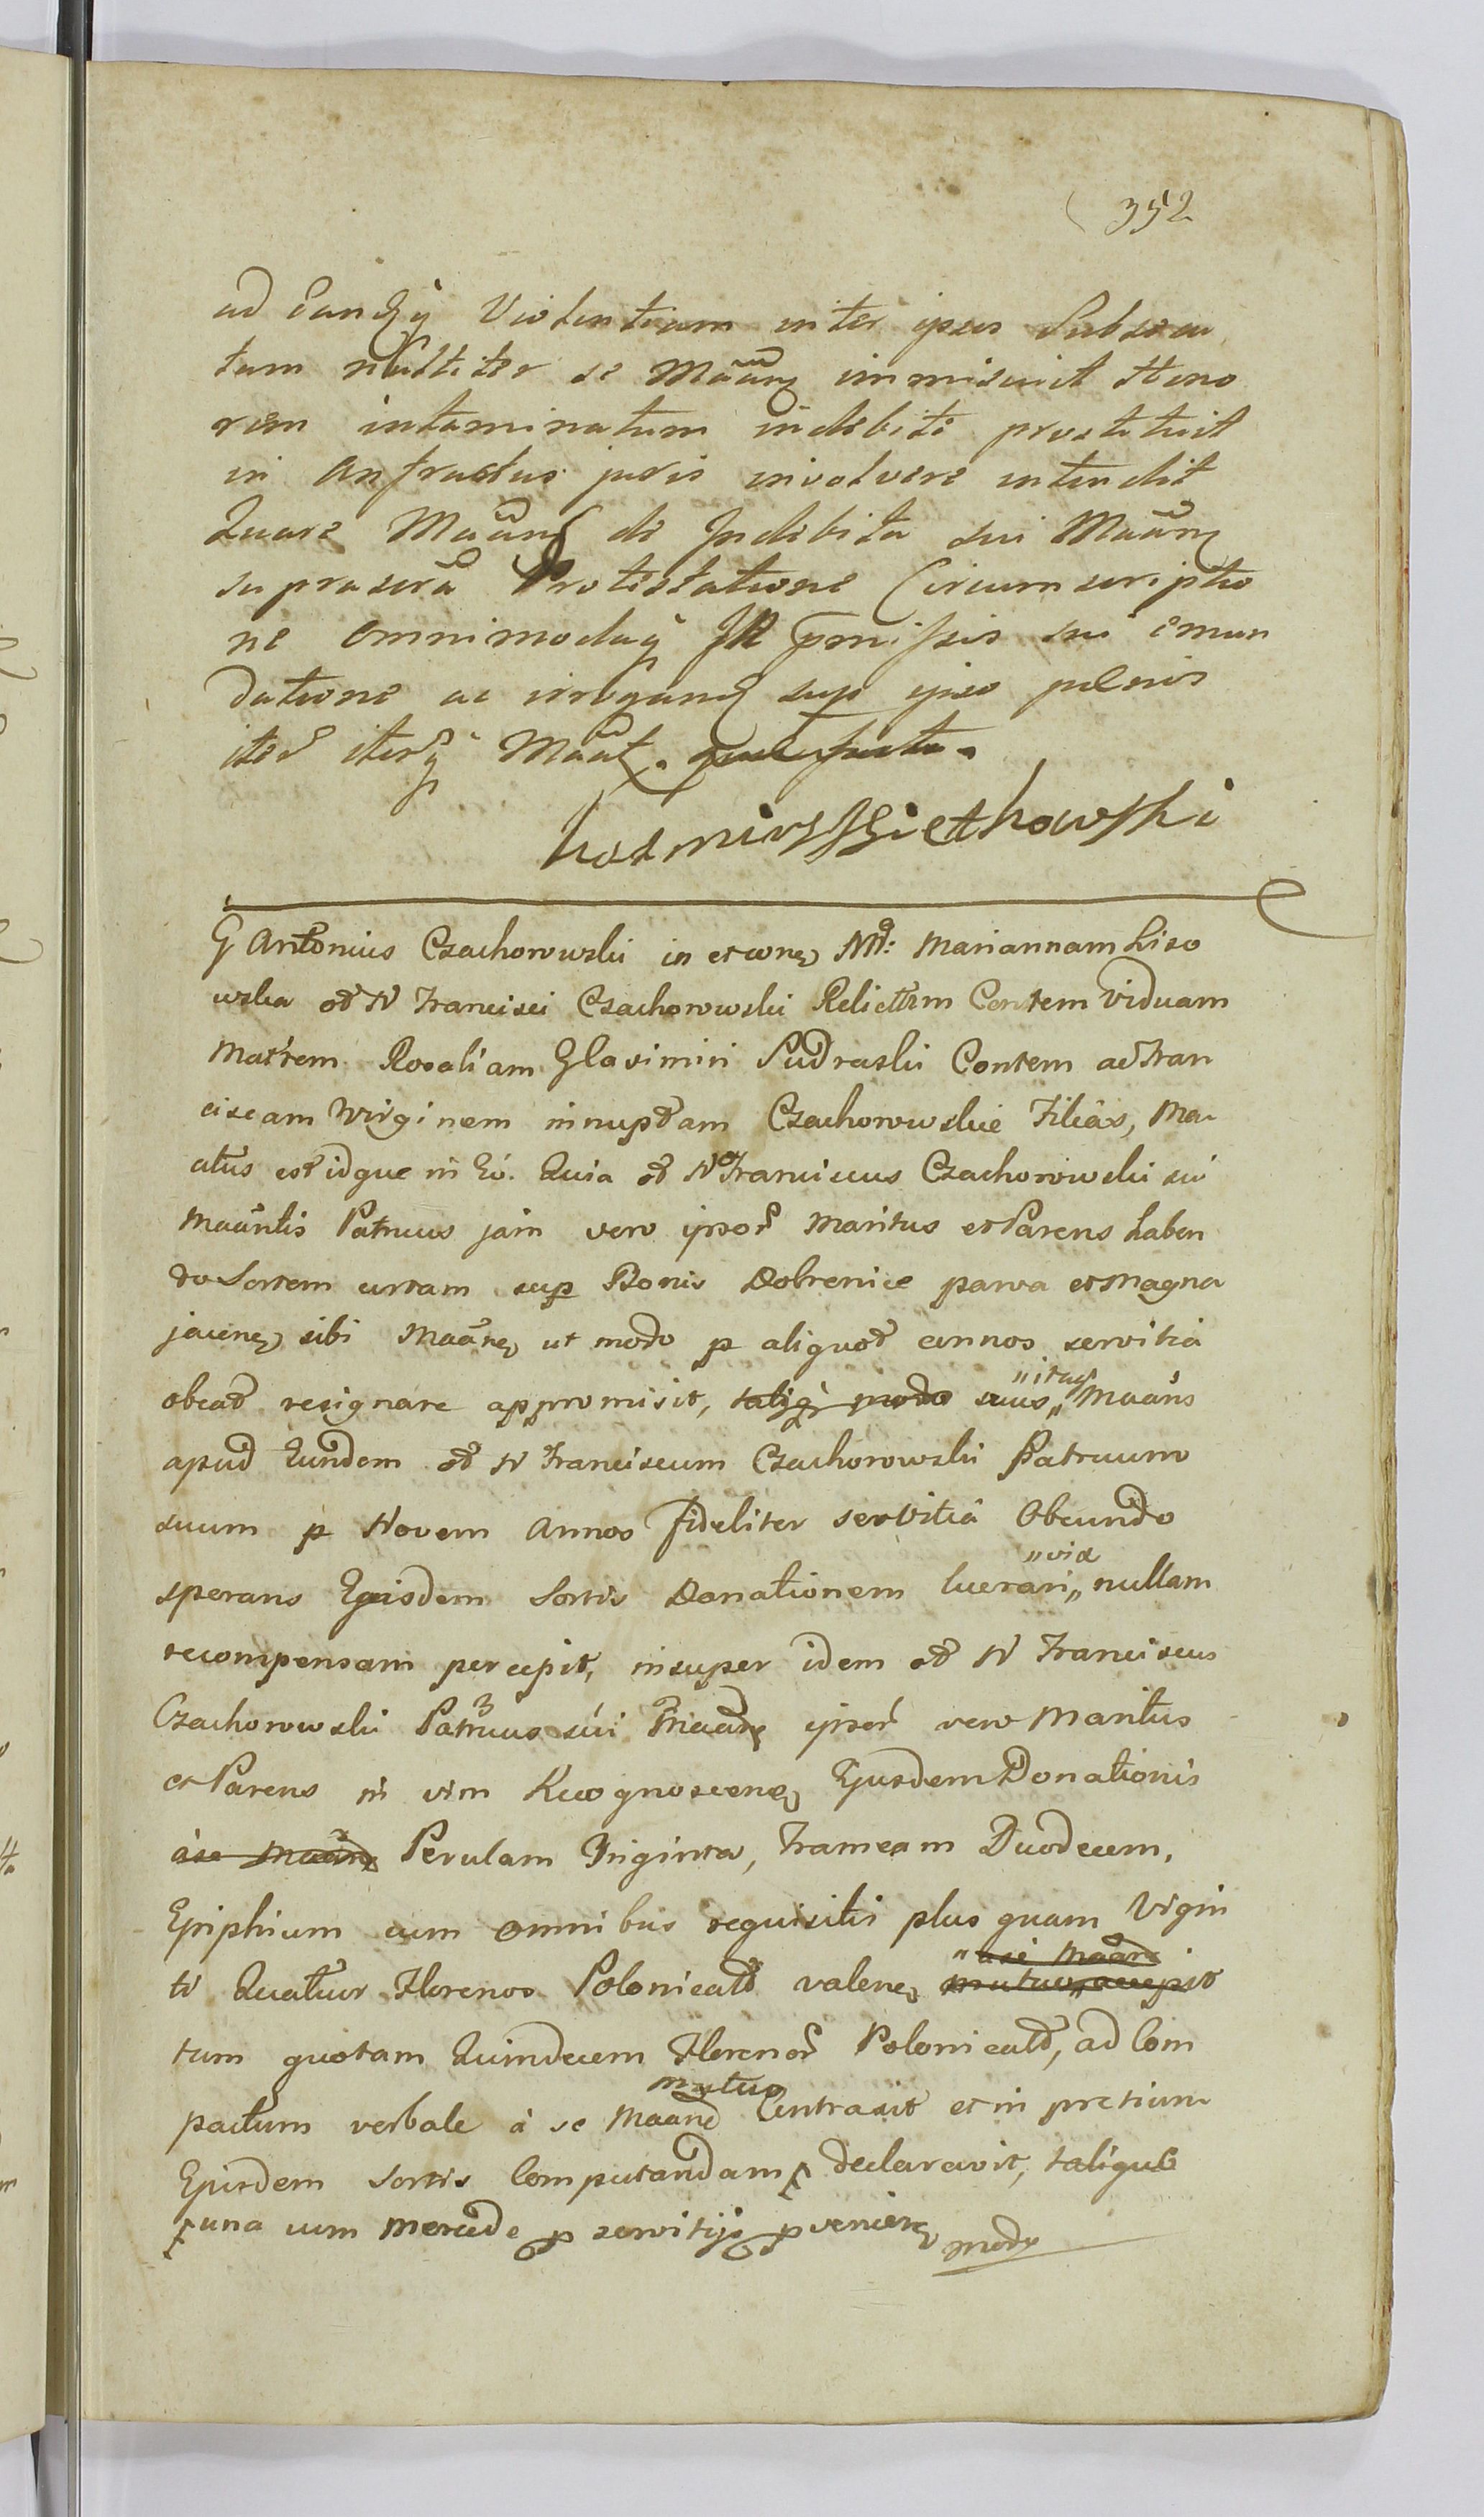 352
ad Eandq̃ Violentiam inter ipsos Subsecu
tam nulliter se Maanq immiscuit Hono
rem intaminatum indebite prostituit
in Anfractus juris involvere intendit
Quare Maanq de Indebita sui Maanq
suprascra Protestatione Circumscriptio
ne omnimodaq̃ JR pmissis sui emun
datione ac irrogand sup ipso pœnis
iterũ iterq̃ Maat.
G Antonius Czachorowski in et cone Md: Mariannam Liso
wska oд N Francisci Czachorowski Relictam Contem Viduam
Matrem Rosaliam Glasimiri Sudraski Contem ac Fran
ciscam Virginem innuptam Czachorowskie Filias, Ma
atus est idque in Eo. Quia oд N Franciscus Czachorowski sui
Maantis Patruus jam vero ipsor Maritus et Parens haben
do Sortem certam sup Bonis Dobrenice parva et Magna
jacene sibi Maane ut modo p aliquot annos servitia
obeat resignare appromisit, taliq̃ modo suus „itaq̃„ Maans
apud Eundem oд N Franciscum Czachorowski Patruum
suum p Novem Annos fideliter servitia Obeundo
sperans Ejusdem Sortis Donationem lucrari „vix„ nullam
recompensam percepit, insuper idem oд N Franciscus
Czachorowski Patruus sui Maane ipsor vero Maritus
et Parens in vim Recognoscene Ejusdem Donationis
a se Maane Perulam Triginta, Frameam Duodecem,
Epiphium cum omnibus requisitis plus quam Vigin
ti Quatuor Florenos Polonicales valene „a se Maane mutuo„ accepit
tum quotam Quindecem Florenor Polonicales, ad Com
pactum verbale à se Maane mutuo Contraxit et in pretium
Ejusdem Sortis Computandam declaravit, talique
una cum Mercede p servitijs pveniene modo